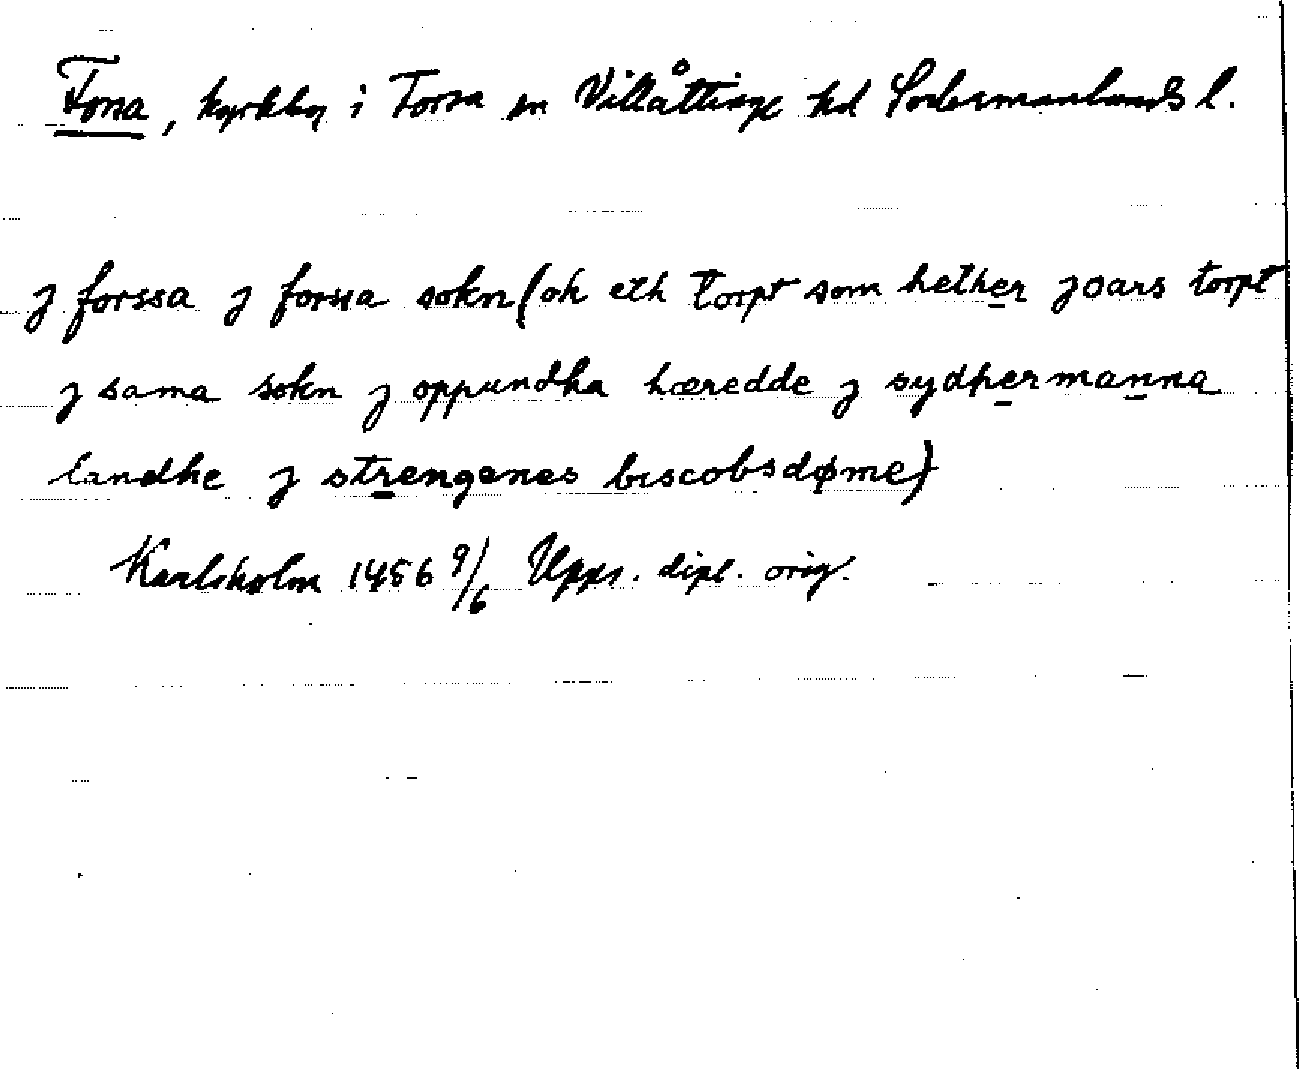 Forsa, kyrkby i Forsa sn Villåttinge hd Södermanlands l.
j forssa j forssa sokn (ok eth torpt som hether joars torpt
j sama sokn j oppundha hæredde j sydhermanna
landhe j strengenes biscobsdøme)
Karlsholm 1456 9/6 Upps. dipl. orig.